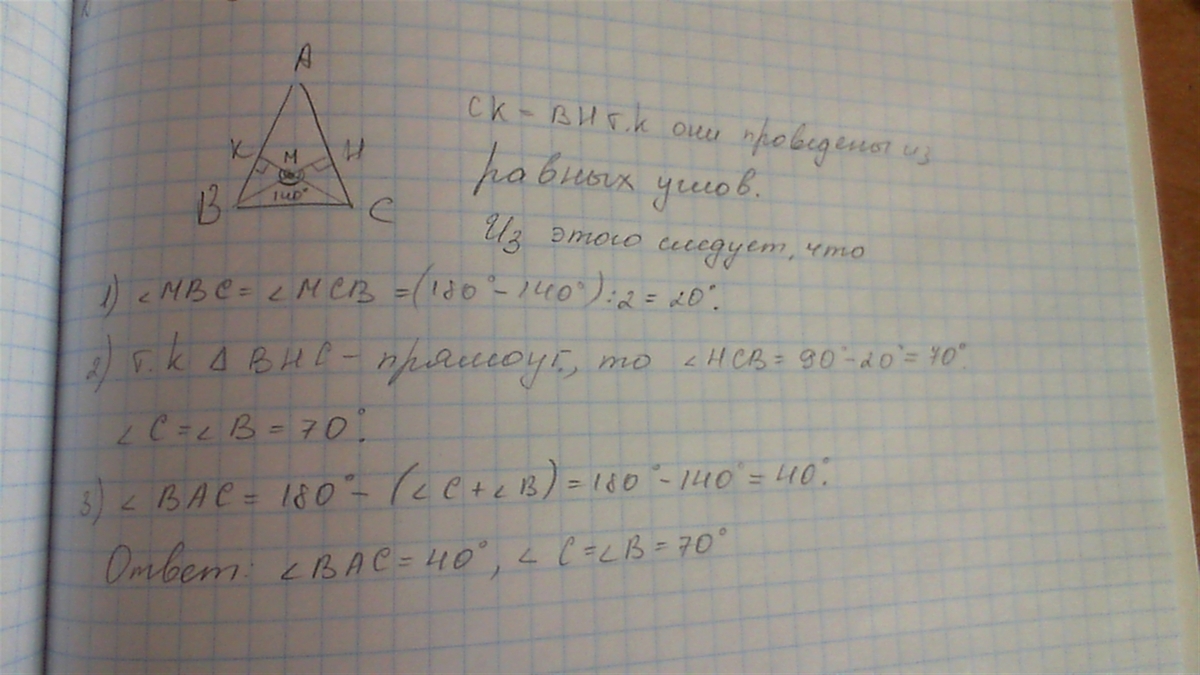 A
K M H
140°
B C
CK = BH т.к они проведены из
равных углов.
Из этого следует, что
1) ∠MBC = ∠MCB = (180° - 140°) : 2 = 20°.
2) т.к △ BHC - прямоуг., то ∠HCB = 90° - 20° = 70°.
∠C = ∠B = 70°.
3) ∠BAC = 180° - (∠C + ∠B) = 180° - 140° = 40°.
Ответ: ∠BAC = 40°, ∠C = ∠B = 70°